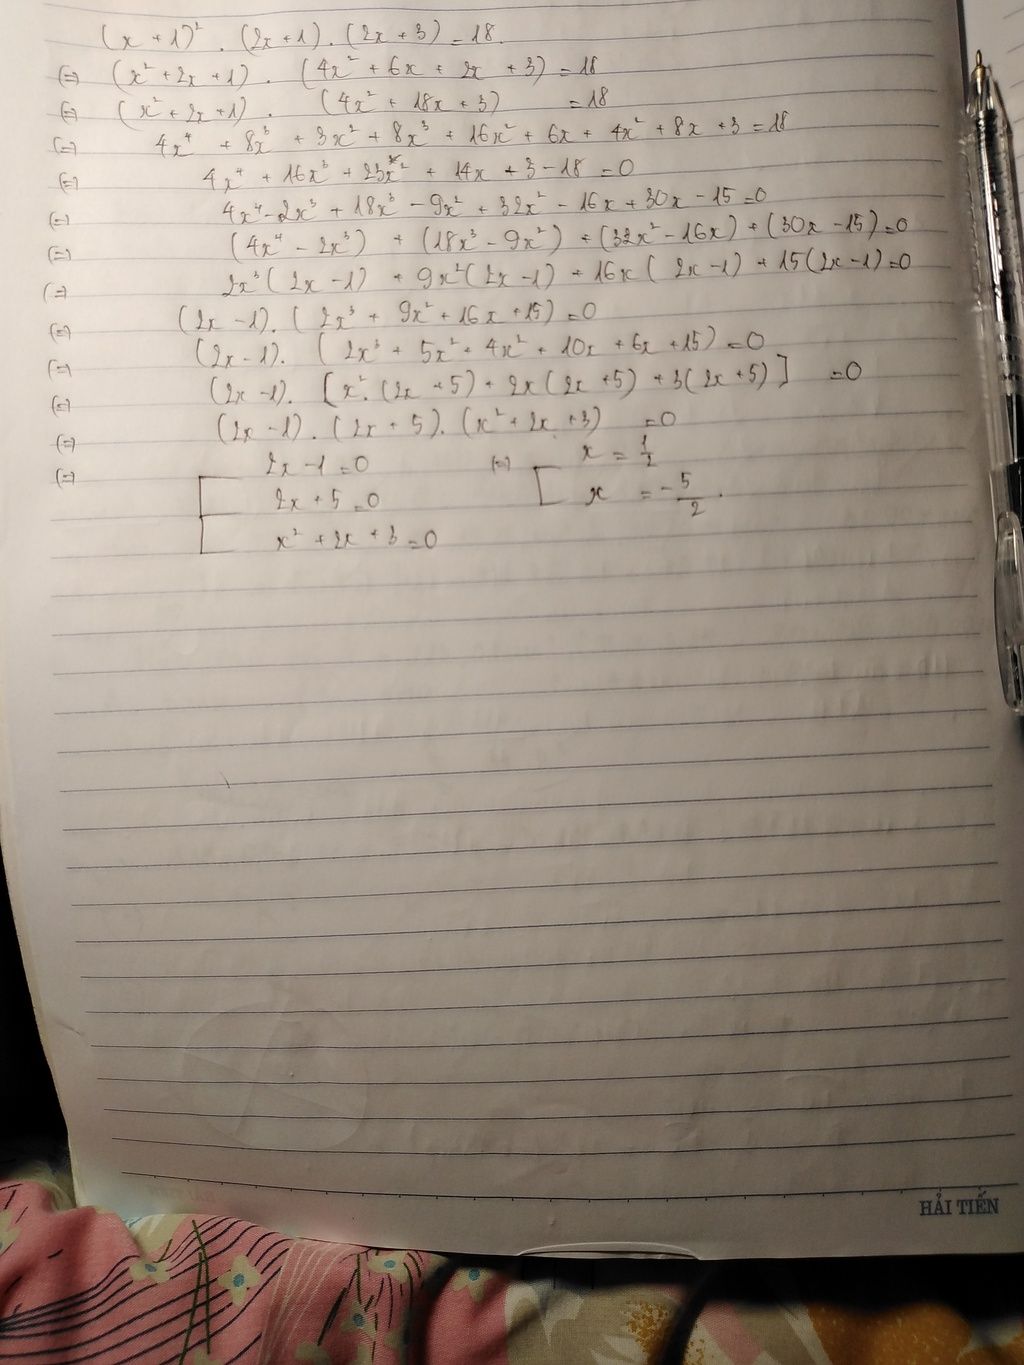 (x + 1)² . (2x + 1) . (2x + 3) = 18.
(=) (x² + 2x + 1) . (4x² + 6x + 2x + 3) = 18
(=) (x² + 2x + 1) . (4x² + 18x + 3) = 18
(=) 4x⁴ + 8x³ + 3x² + 8x³ + 16x² + 6x + 4x² + 8x + 3 = 18
(=) 4x⁴ + 16x³ + 23x² + 14x + 3 - 18 = 0
(=) 4x⁴ - 2x³ + 18x³ - 9x² + 32x² - 16x + 30x - 15 = 0
(=) (4x⁴ - 2x³) + (18x³ - 9x²) + (32x² - 16x) + (30x - 15) = 0
(=) 2x³(2x - 1) + 9x²(2x - 1) + 16x(2x - 1) + 15(2x - 1) = 0
(=) (2x - 1) . (2x³ + 9x² + 16x + 15) = 0
(=) (2x - 1) . (2x³ + 5x² + 4x² + 10x + 6x + 15) = 0
(=) (2x - 1) . [x² . (2x + 5) + 2x(2x + 5) + 3(2x + 5)] = 0
(=) (2x - 1) . (2x + 5) . (x² + 2x + 3) = 0
(=) 2x - 1 = 0 (=) x = 1/2
2x + 5 = 0 x = -5/2.
x² + 2x + 3 = 0
HẢI TIẾN